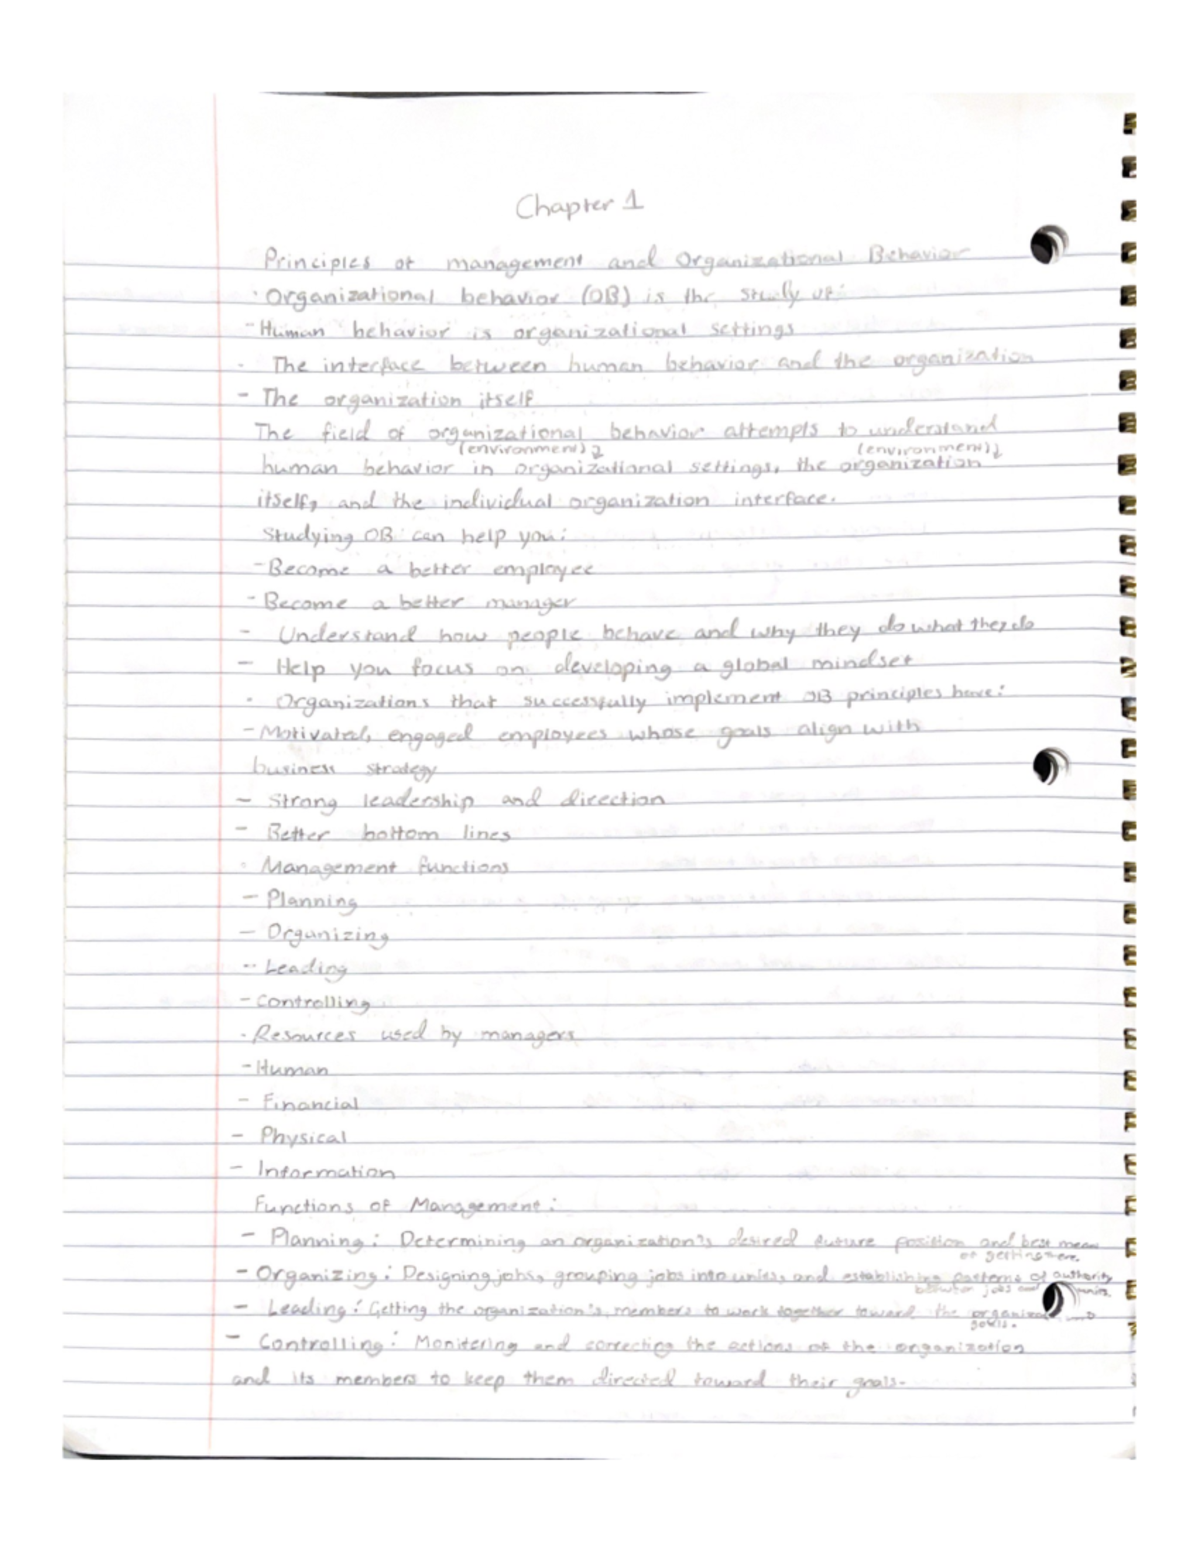 Chapter 1
Principles of management and Organizational Behavior
· Organizational behavior (OB) is the study of:
- Human behavior is organizational settings
· The interface between human behavior and the organization
- The organization itself
The field of organizational behavior attempts to understand
(environment) (environment)
human behavior in organizational settings, the organization
itself, and the individual organization interface.
Studying OB can help you:
- Become a better employee
- Become a better manager
- Understand how people behave and why they do what they do
- Help you focus on developing a global mindset
· Organizations that successfully implement OB principles have:
- Motivated, engaged employees whose goals align with
business strategy
- Strong leadership and direction
- Better bottom lines
· Management functions
- Planning
- Organizing
- Leading
- Controlling
· Resources used by managers
- Human
- Financial
- Physical
- Information
Functions of Management:
- Planning: Determining an organization's desired future position and best mean
of getting
- Organizing: Designing jobs, grouping jobs into units, and establishing patterns of authority
between jobs and units.
- Leading: Getting the organization's members to work together toward the
goals.
- Controlling: Monitering and correcting the actions of the organization
and its members to keep them directed toward their goals.